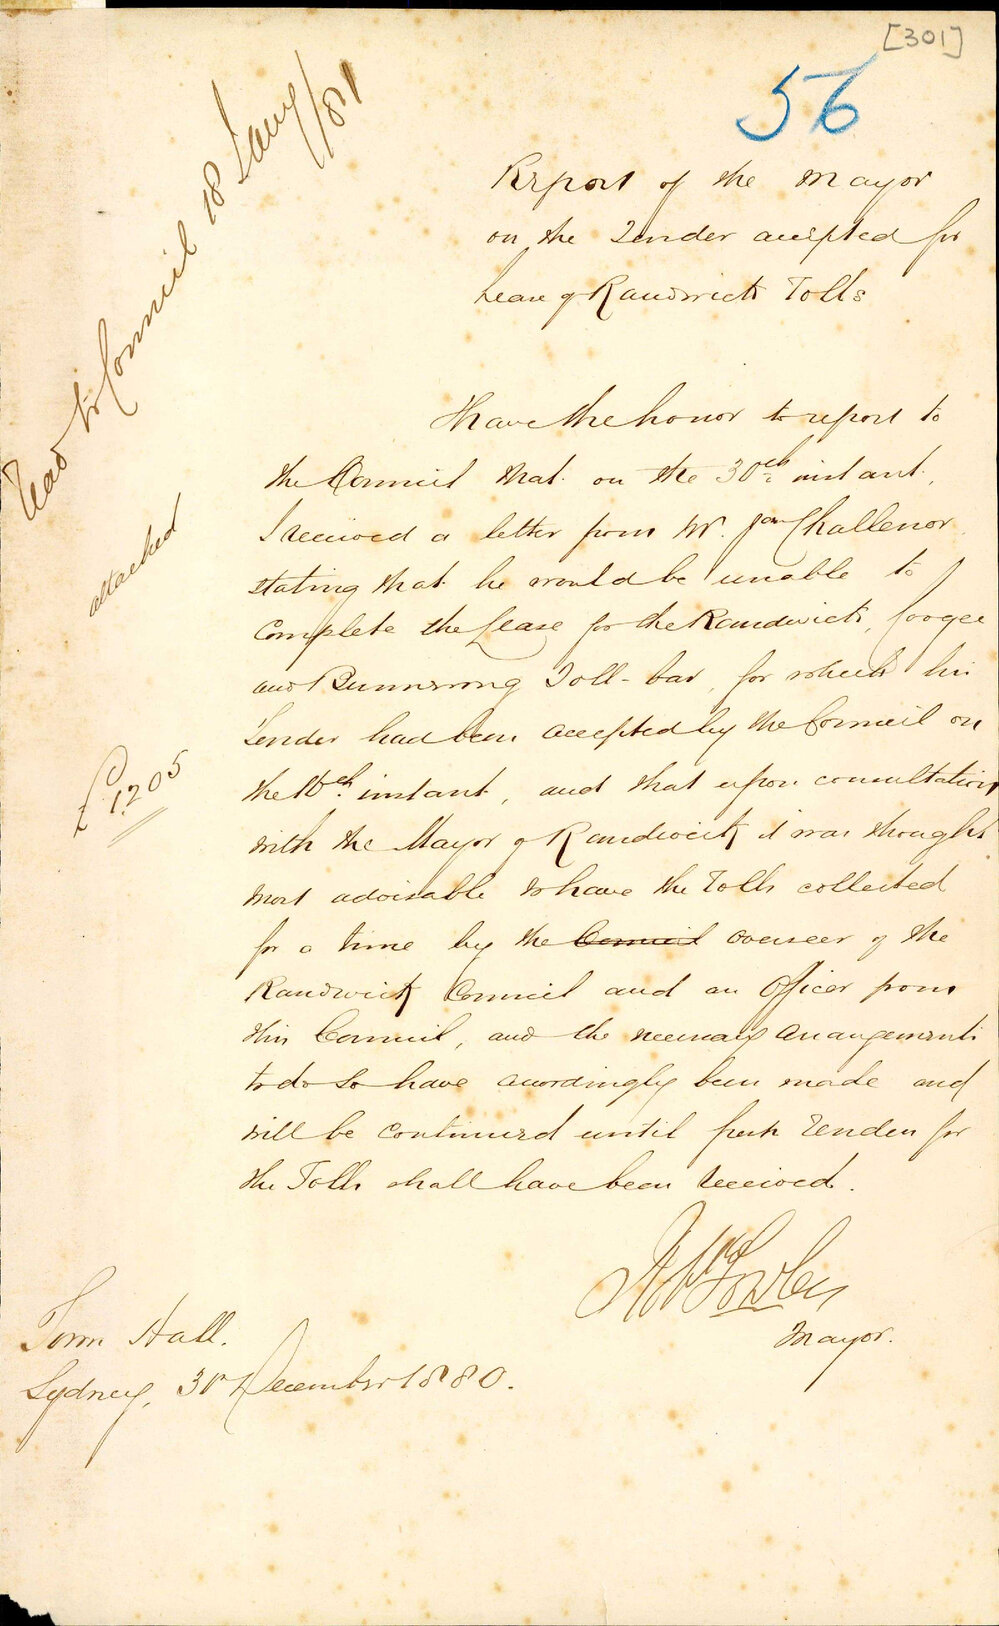 [301]
56
Read to Council 18 Jany/81
Report of the Mayor
on the Tender accepted for
Lease of Randwick Tolls
I have the honor to report to
the Council that on the 30th instant,
I received a letter from Mr. Jas Challenor
stating that he would be unable to
complete the Lease for the Randwick, Coogee
and Bunnerong Toll-bar, for which his
Tender had been accepted by the Council on
the 16th instant, and that upon consultation
with the Mayor of Randwick it was thought
most advisable to have the Tolls collected
for a time by the Council overseer of the
Randwick Council and an Officer from
this Council, and the necessary arrangements
to do so have accordingly been made and
will be continued until fresh Tenders for
the Tolls shall have been received.
attached
£1205
Fowler
Mayor.
Town Hall.
Sydney, 31st December 1880.